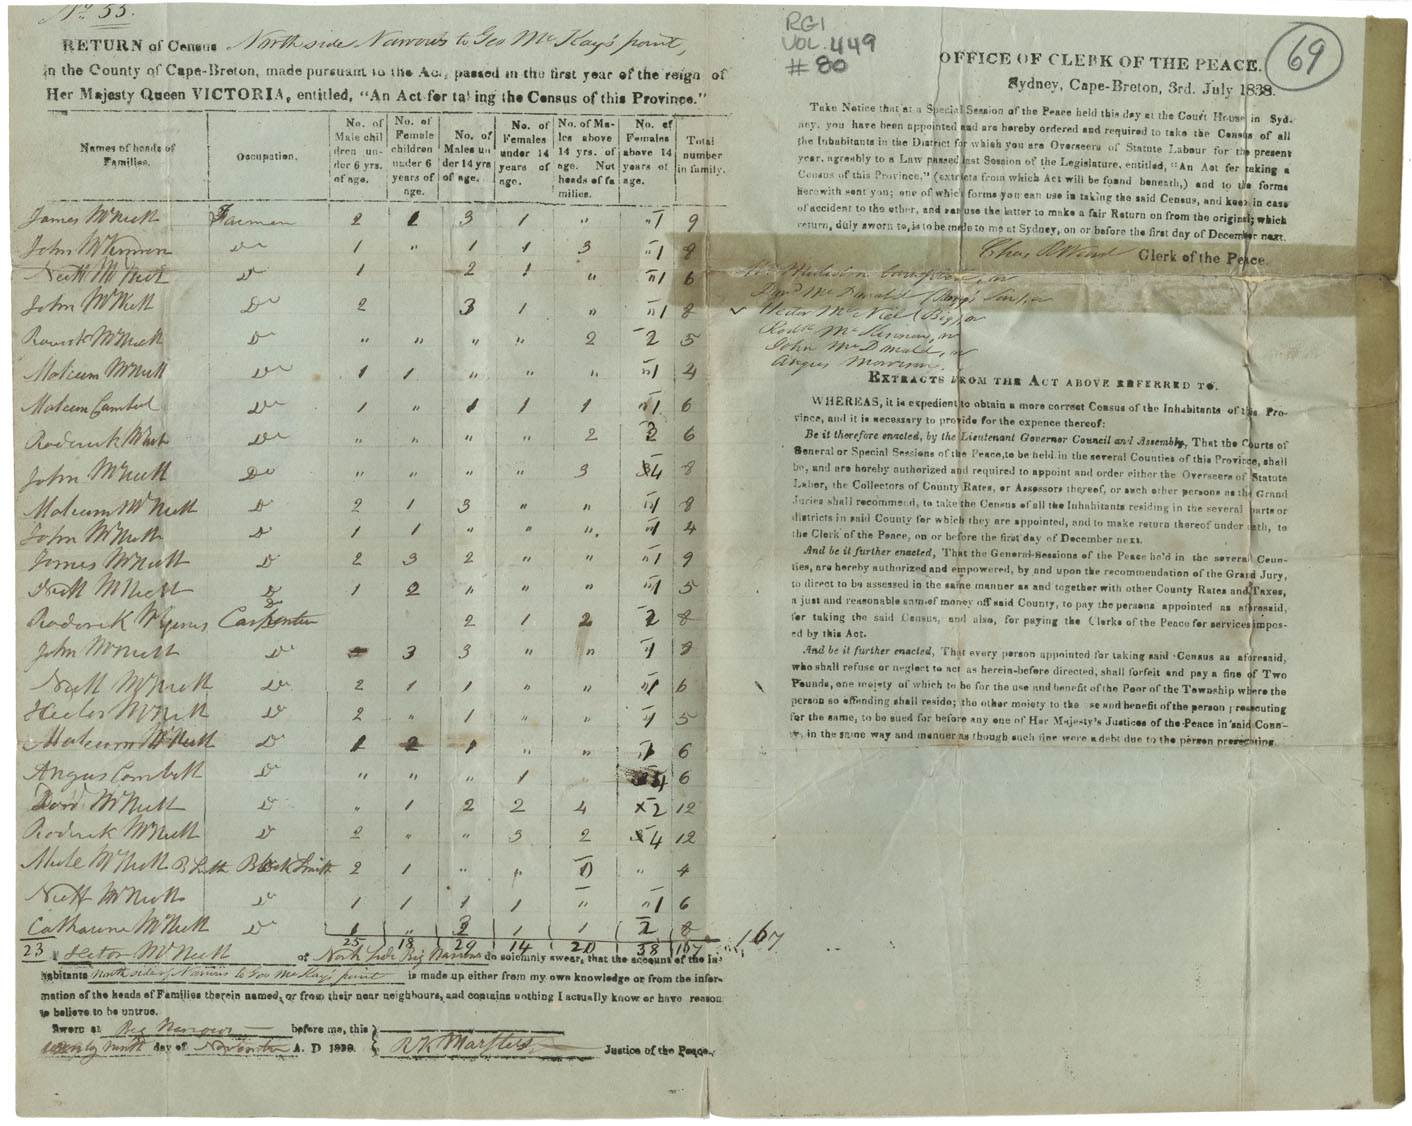 No 55.
RETURN of Census North side Narrows to Geo McKay's point,
in the County of Cape-Breton, made pursuant to the Act, passed in the first year of the reign of
Her Majesty Queen VICTORIA, entitled, "An Act for taking the Census of this Province."
Names of heads of Families. Occupation. No. of Male children under 6 yrs. of age. No. of Female children under 6 years of age. No. of Males under 14 yrs of age. No. of Females under 14 years of age. No. of Males above 14 yrs. of age. Not heads of families. No. of Females above 14 years of age. Total number in family.
James McNeill Farmer 2 1 3 1 " "1 9
John McKinnon Do 1 " 1 1 3 "1 8
Neill McNeill Do 1 2 1 " "1 6
John McNeill Do 2 3 1 " "1 8
McNeill Do " " " " 2 2 5
Malcum McNeill Do 1 1 " " " "1 4
Malcum Cambel Do 1 " 1 1 1 "1 6
Roderick McNeil Do " " " " 2 6
John McNeill Do " " " " 3 4 8
Malcum McNeill Do 2 1 3 " " "1 8
John McNeill Do 1 1 " " " "1 4
James McNeill Do 2 3 2 " " "1 9
Neill McNeill Do 1 2 " " " "1 5
Roderick Carpenter 2 1 2 2 8
John McNeill Do 3 3 " " "1 8
Neill McNeill Do 2 1 1 " " "1 6
Hector McNeill Do 2 " 1 " " "1 5
Malcum McNeill Do 1 2 1 " " "1 6
Angus Cambell Do " " " 1 4 6
McNeill Do " 1 2 2 4 2 12
Roderick McNeill Do 2 " " 3 2 4 12
McNeill B Smith Black Smith 2 1 " " " 4
Neill McNeill Do 1 1 1 1 " "1 6
Catharine McNeill Do 1 " 1 1 2 8
23 25 18 29 14 20 38 167 167
I Hector McNeill of North Side Big Narrows do solemnly swear, that the account of the In-
habitants north side of Narrows to Geo McKay's point is made up either from my own knowledge or from the infor-
mation of the heads of Families therein named, or from their near neighbours, and contains nothing I actually know or have reason
to believe to be untrue.
Sworn at Big Narrows before me, this
twenty ninth day of November A. D 1838. Justice of the Peace.
RG1
VOL. 449
# 80
69
OFFICE OF CLERK OF THE PEACE.
Sydney, Cape-Breton, 3rd. July 1838.
Take Notice that at a Special Session of the Peace held this day at the Court House in Syd-
ney, you have been appointed and are hereby ordered and required to take the Census of all
the Inhabitants in the District for which you are Overseers of Statute Labour for the present
year, agreeably to a Law passed last Session of the Legislature, entitled, "An Act for taking a
Census of this Province," (extracts from which Act will be found beneath,) and to the forms
herewith sent you; one of which forms you can use in taking the said Census, and keep in case
of accident to the other, and can use the latter to make a fair Return on from the original; which
return, duly sworn to, is to be made to me at Sydney, on or before the first day of December next.
Chas R Ward Clerk of the Peace.
McDonald
Hector McNeil (Big), or
Rodk McKinnon, or
John McDonald, or
Angus Morrison.
EXTRACTS FROM THE ACT ABOVE REFERRED TO.
WHEREAS, it is expedient to obtain a more correct Census of the Inhabitants of this Pro-
vince, and it is necessary to provide for the expence thereof:
Be it therefore enacted, by the Lieutenant Governor Council and Assembly, That the Courts of
General or Special Sessions of the Peace, to be held in the several Counties of this Province, shall
be, and are hereby authorized and required to appoint and order either the Overseers of Statute
Labor, the Collectors of County Rates, or Assessors thereof, or such other persons as the Grand
Juries shall recommend, to take the Census of all the Inhabitants residing in the several parts or
districts in said County for which they are appointed, and to make return thereof under oath, to
the Clerk of the Peace, on or before the first day of December next.
And be it further enacted, That the General Sessions of the Peace he'd in the several Coun-
ties, are hereby authorized and empowered, by and upon the recommendation of the Grand Jury,
to direct to be assessed in the same manner as and together with other County Rates and Taxes,
a just and reasonable sum of money off said County, to pay the persons appointed as aforesaid,
for taking the said Census, and also, for paying the Clerks of the Peace for services impos-
ed by this Act.
And be it further enacted, That every person appointed for taking said Census as aforesaid,
who shall refuse or neglect to act as herein-before directed, shall forfeit and pay a fine of Two
Pounds, one moiety of which to be for the use and benefit of the Poor of the Township where the
person so offending shall reside; the other moiety to the use and benefit of the person prosecuting
for the same, to be sued for before any one of Her Majesty's Justices of the Peace in said Coun-
ty, in the same way and manner as though such fine were a debt due to the person prosecuting.